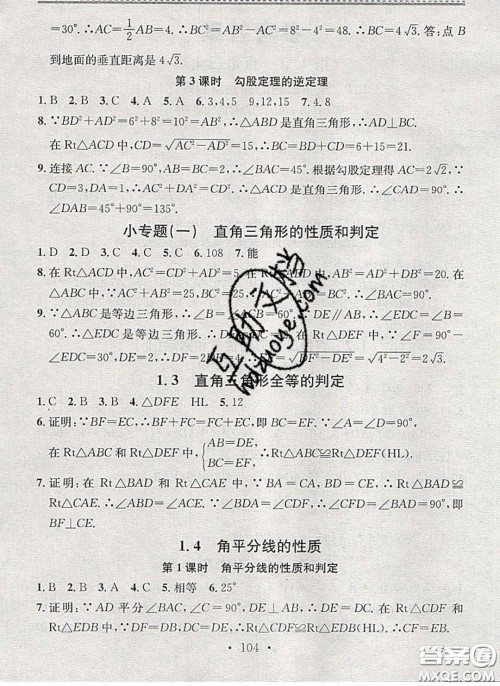 =30°.∴AC=1/2AB=4.∴BC²=AB²-AC²=8²-4²=48.∴BC=4√3.答:点B
到地面的垂直距离是4√3.
第3课时 勾股定理的逆定理
1.B 2.B 3.C 4.A 5.A 6.3,4,5 9,12,15 7.4.8
8.∵BD²+AD²=6²+8²=10²=AB²,∴△ABD是直角三角形,∴AD⊥BC.
在Rt△ACD中,CD=√(AC²-AD²)=15,∴BC=BD+CD=
9.连接AC.∵∠B=90°,AB=BC=2,∴∠BAC=45°.根据勾股定理得AC=2√2.∵
CD=3,DA=1,∴CD²=AC²+DA².∴△ACD是直角三角形.∴∠CAD=90°.∴
∠DAB=45°+90°=135°.
小专题(一) 直角三角形的性质和判定
1.D 2.D 3.C 4.C 5.C 6.108 7.能
8.在Rt△ACD中,AC²=CD²+AD²=5.在Rt△ABD中,AB²=AD²+BD²=20.在
△ABC中,∵
9.∵△ABC是等边三角形,∴∠B=∠ACB=60°.∵DE∥AB,∴∠EDC=∠B=
60°.∴△EDC是等边三角形.∴DE=DC=2.在Rt△DEF中,∵∠F=90°-∠EDC
=30°,∴DF=2DE=4.∴EF=√(DF²-DE²)=√(4²-2²)=2√3.
1.3 直角三角形全等的判定
1.C 2.B 3.B 4.△DFE HL 5.12
6.证明:∵BF=EC,∴BF+FC=FC+EC,即BC=EF.∵∠A=∠D=90°,∴
在Rt△ABC和Rt△DEF中,{AB=DE, BC=EF,∴Rt△ABC≌Rt△DEF(HL).
7.证明:在Rt△ABD和Rt△CAE中,∵BA=CA,BD=AE,∴Rt△ABD≌
Rt△CAE.∴∠ABD=∠CAE.∵∠CAE+∠BAF=90°,∴∠ABD+∠BAF=90°,即
BF⊥CE.
1.4 角平分线的性质
第1课时 角平分线的性质和判定
1.B 2.B 3.A 4.C 5.相等 6.25°
7.证明:∵AD平分∠BAC,∠C=90°,DE⊥AB,∴DC=DE.在Rt△CDF和
Rt△EDB中,∵DF=DB,DC=DE,∴Rt△CDF≌Rt△EDB(HL).∴CF=EB.
· 104 ·
互助文档
huzuoye.com
答案圈
MXQE.COM